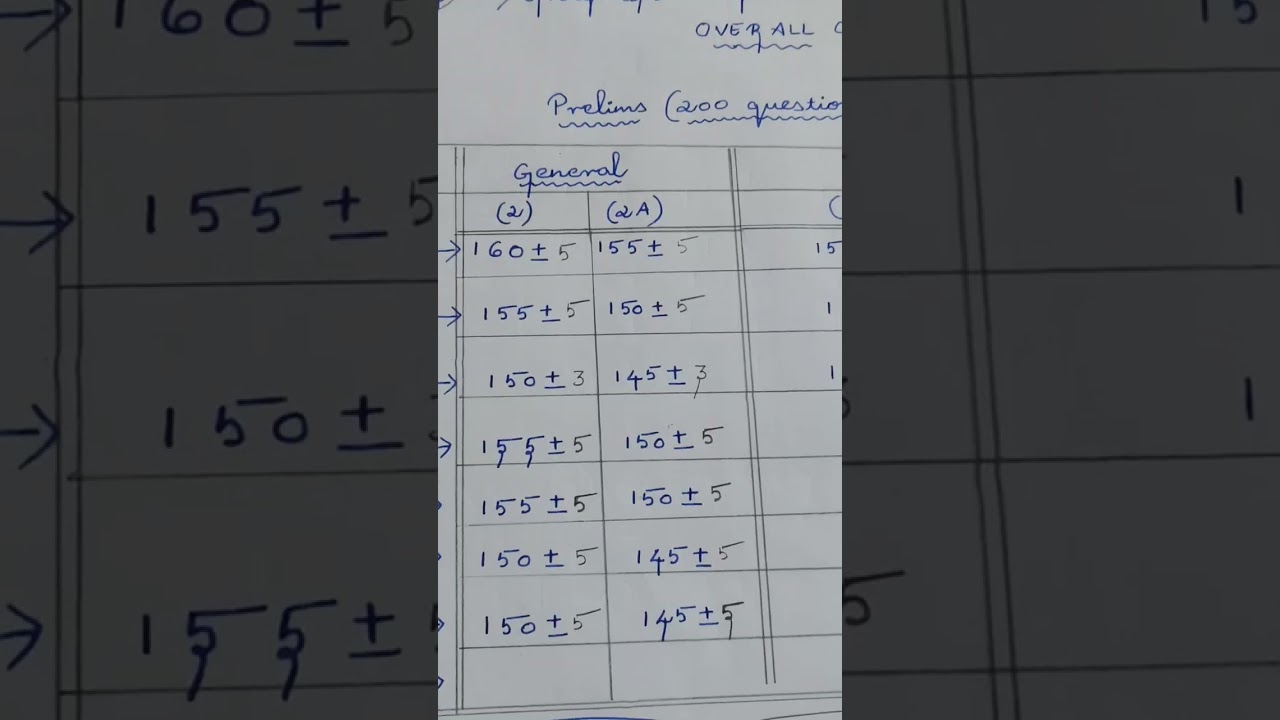 OVERALL
Prelims (200 questio
General
(2) (2A) (
160 ± 5 155 ± 5 15
155 ± 5 150 ± 5 1
150 ± 3 145 ± 3 1
155 ± 5 150 ± 5
155 ± 5 150 ± 5
150 ± 5 145 ± 5
150 ± 5 145 ± 5